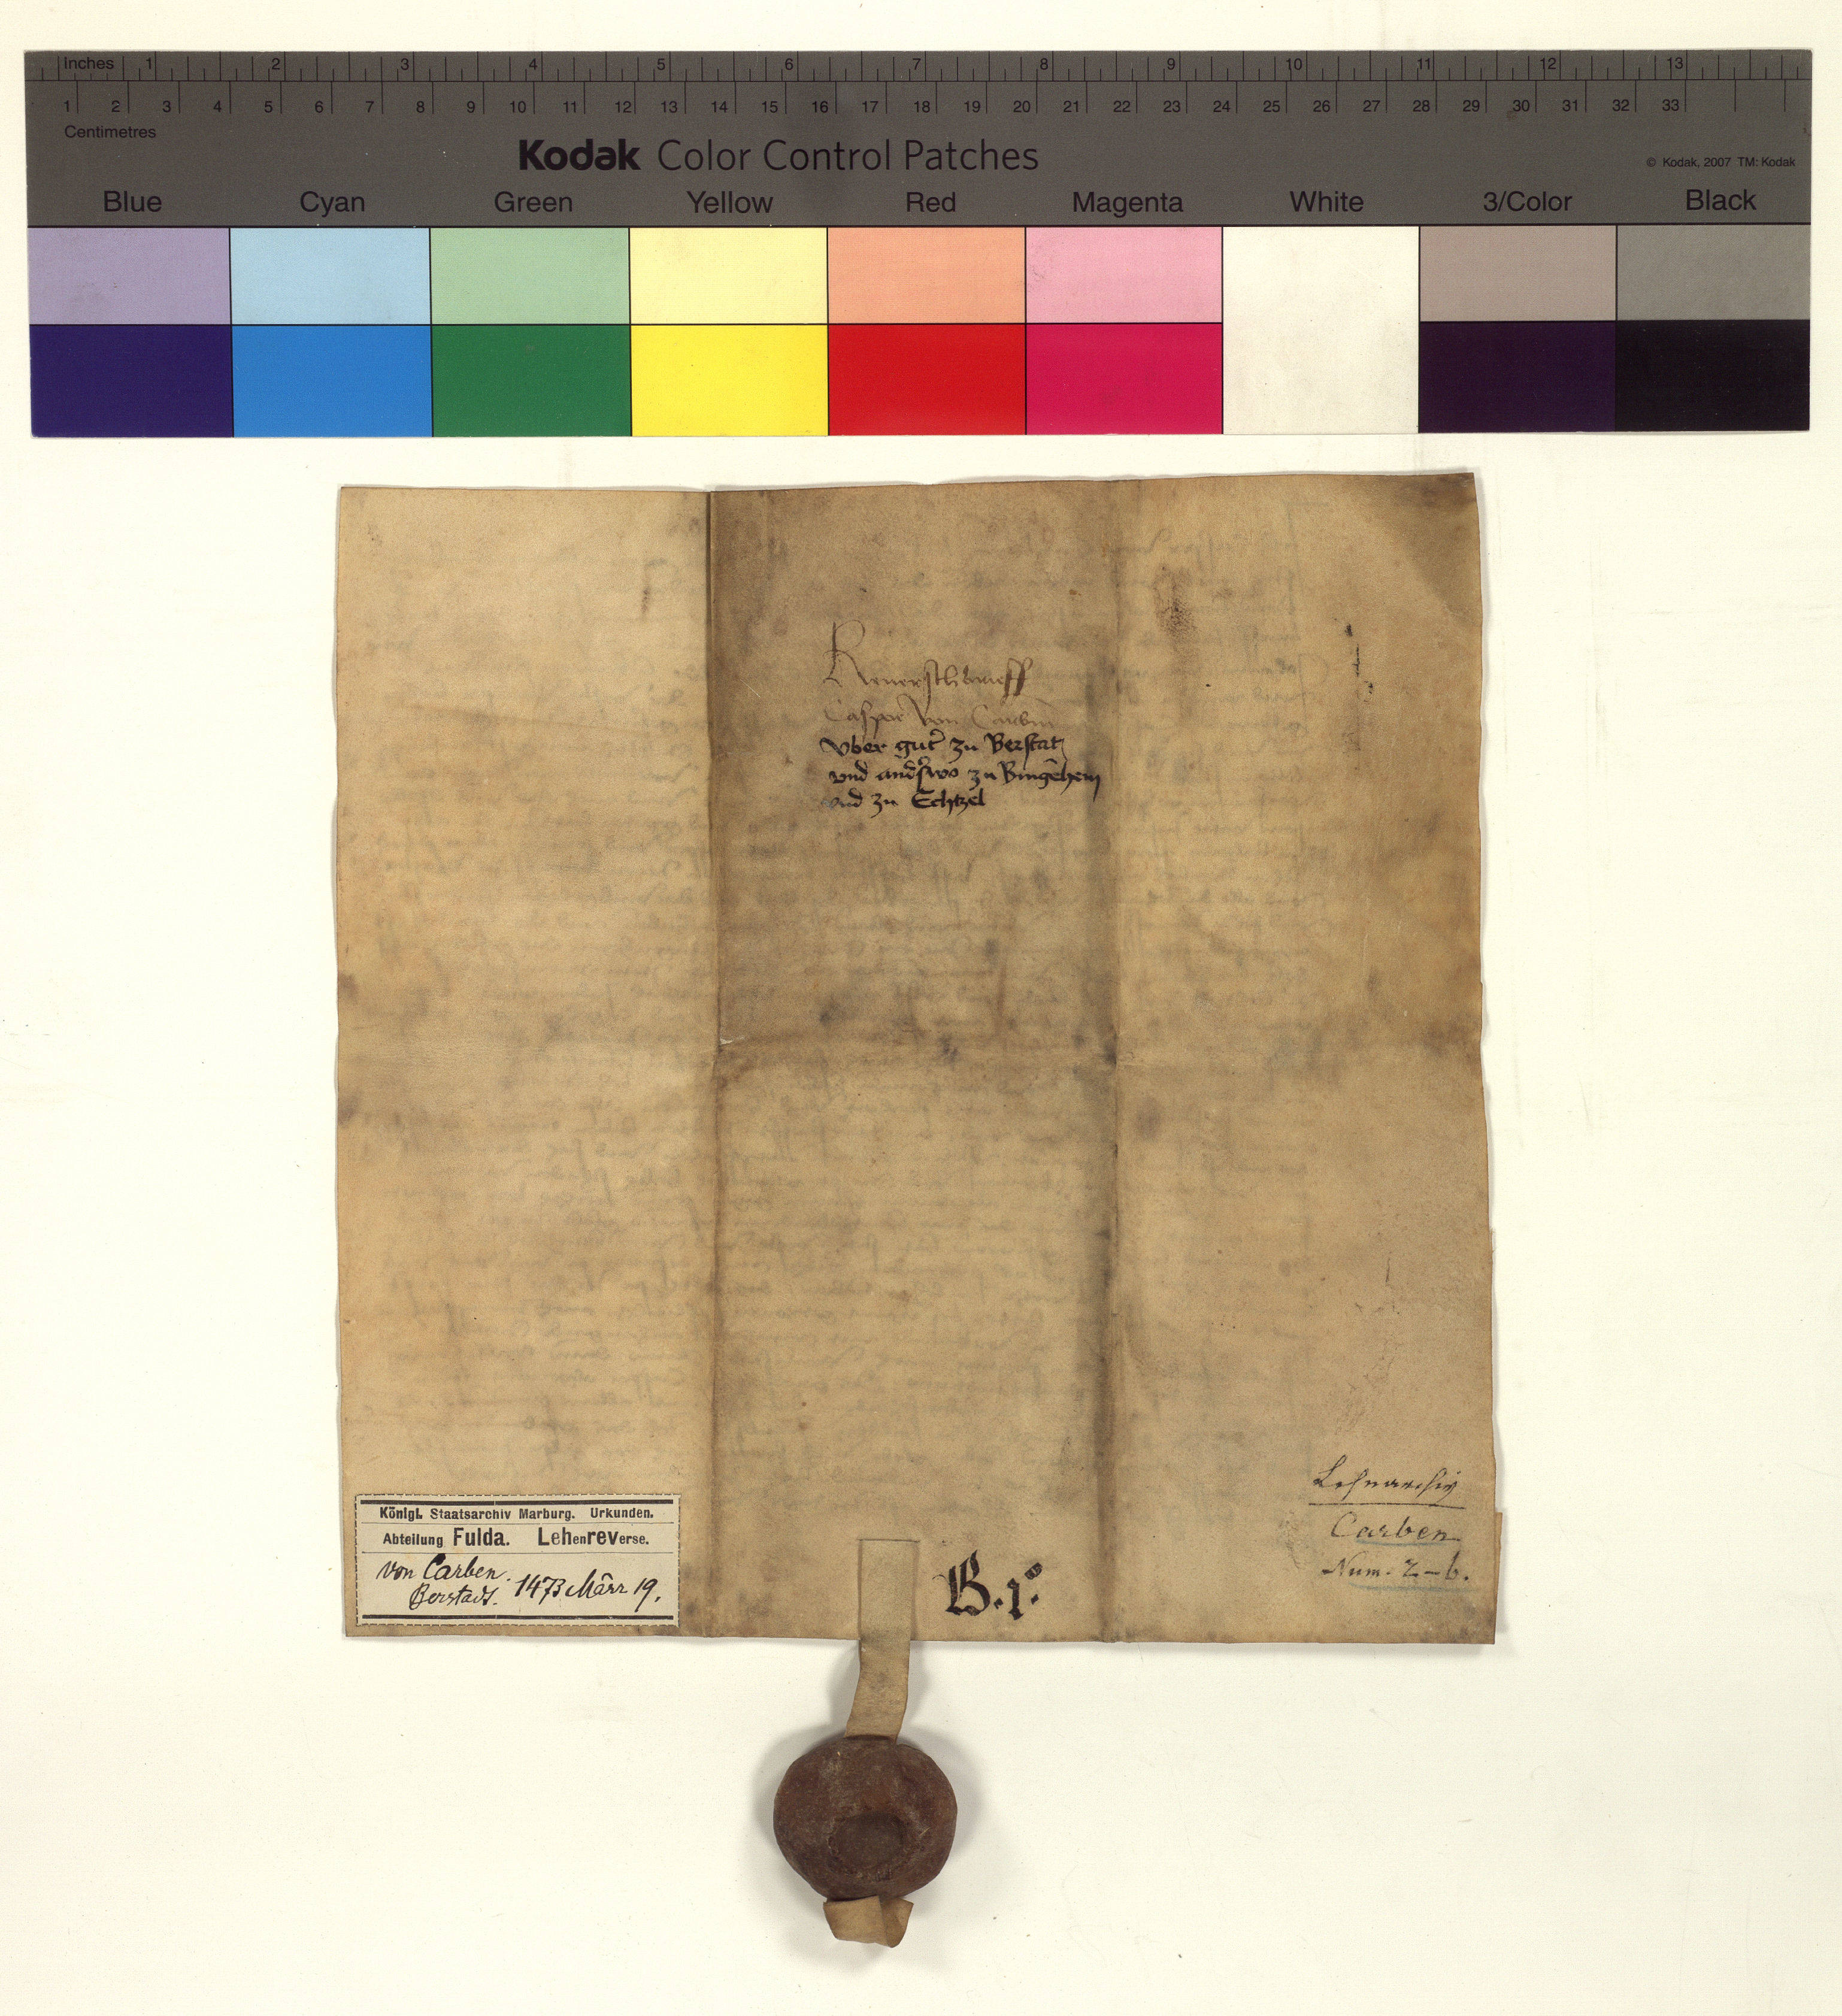 Inches 1 2 3 4 5 6 7 8 9 10 11 12 13
1 2 3 4 5 6 7 8 9 10 11 12 13 14 15 16 17 18 19 20 21 22 23 24 25 26 27 28 29 30 31 32 33
Centimetres
Kodak Color Control Patches
© Kodak, 2007 TM: Kodak
Blue Cyan Green Yellow Red Magenta White 3/Color Black
Caspar von Carbin
vber gut' zu Berstat
vnd and'swo zu Bingēhem
vnd zu Echtzel
Lehnarchiv
Carben
Num. 2-b.
Königl. Staatsarchiv Marburg. Urkunden.
Abteilung Fulda. Lehenreverse.
von Carben.
Berstadt. 1473 März 19.
B.1.